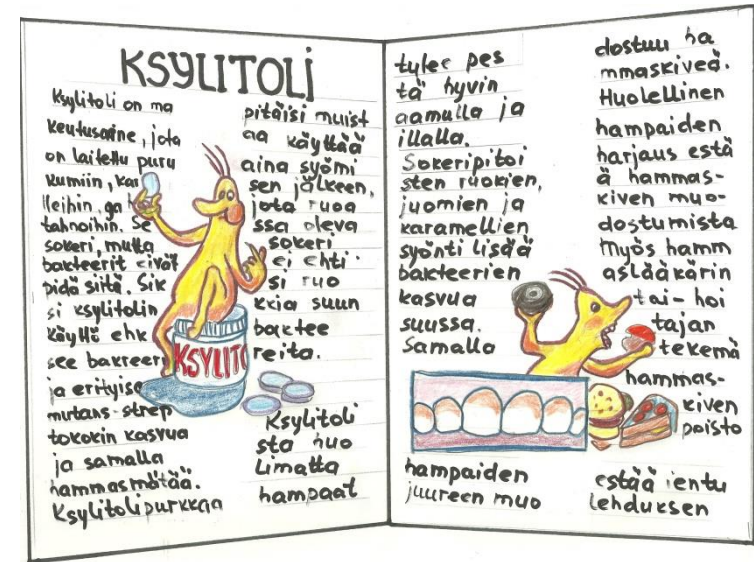 KSYLITOLI
Ksylitoli on ma
keutusaine, jota
on laitettu puru
kumiin, kar
lleihin, ja h
tahnoihin. Se
sokeri, mutta
bakteerit eivät
pidä siitä. Sik
si ksylitolin
käyttö ehk
see bakteer
ja erityise
mutans-strep
tokokin kasvua
ja samalla
hammasmätää.
Ksylitolipurkkaa
pitäisi muist
aa käyttää
aina syömi
sen jälkeen,
jota ruoa
ssa oleva
sokeri
ei ehti
si ruo
kkia suun
baktee
reita.
KSYLITO
Ksylitoli
sta huo
limatta
hampaat
tulee pes
tä hyvin
aamulla ja
illalla.
Sokeripitoi
sten ruokien,
juomien ja
karamellien
syönti lisää
bakteerien
kasvua
suussa.
Samalla
hampaiden
juureen muo
dostuu ha
mmaskiveä.
Huolellinen
hampaiden
harjaus estä
ä hammas-
kiven muo-
dostumista
Myös hamm
aslääkärin
tai- hoi
tajan
tekemä
hammas-
kiven
poisto
estää ientu
lehduksen